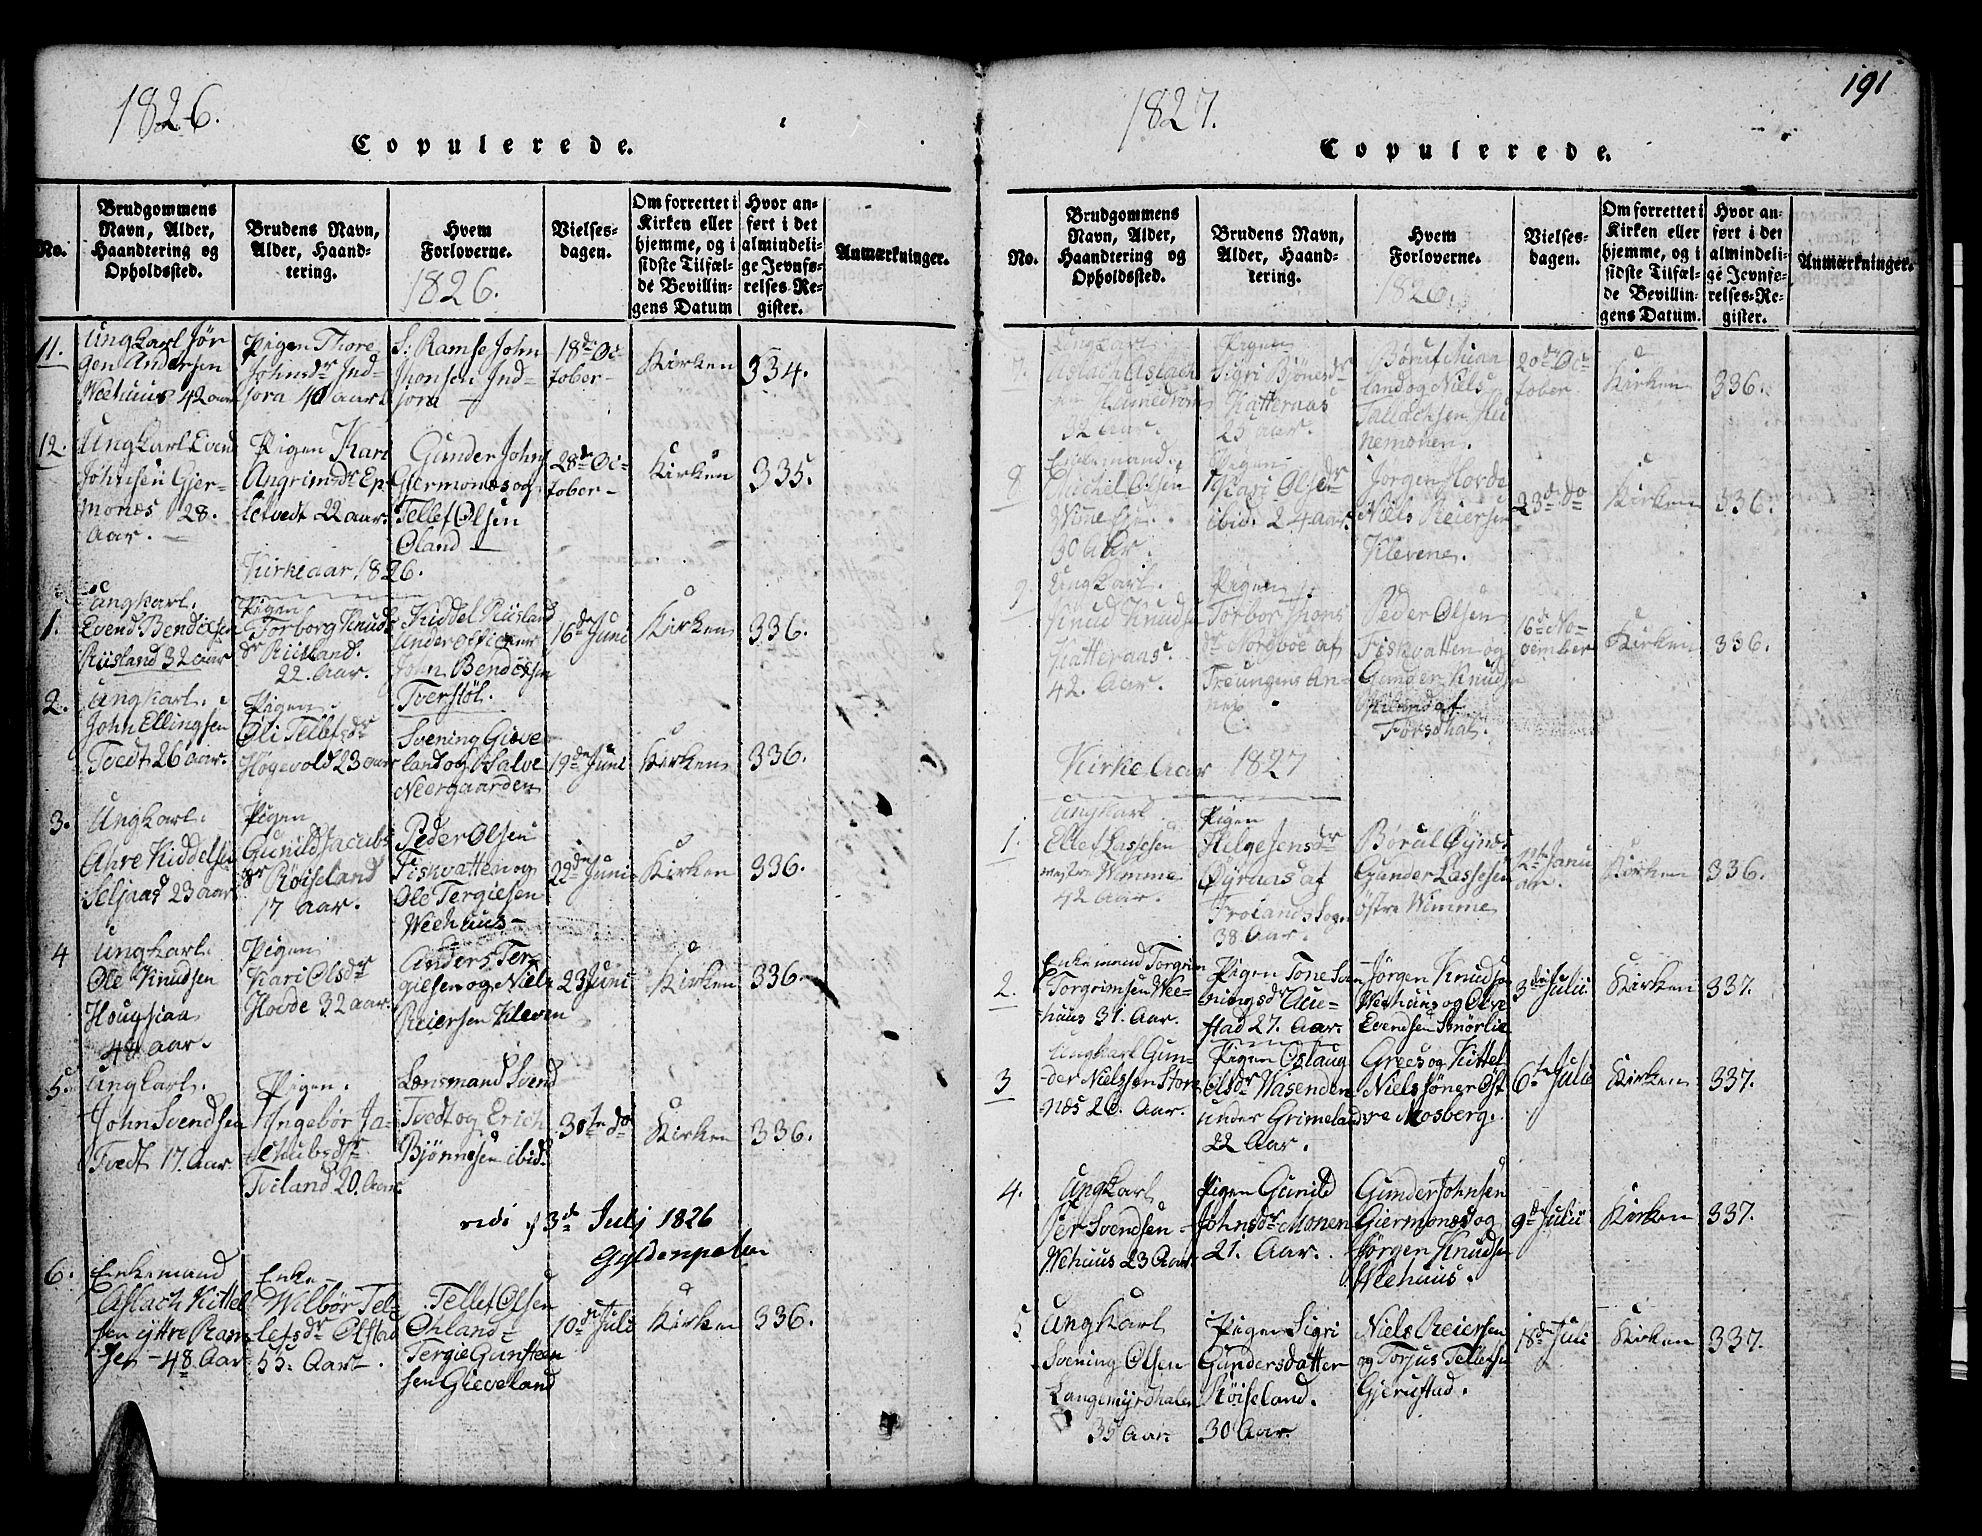 1826.
Copulerede.
No.
Brudgommens
Navn, Alder,
Haandtering og
Opholdssted.
Brudens Navn,
Alder, Haand-
tering.
Hvem
Forloverne.
1826.
Vielses-
dagen.
Om forrettet i
Kirken eller
hjemme, og i
sidste Tilfæl-
de Bevillin-
gens Datum
Hvor an-
ført i det
almindeli-
ge Jevnfø-
relses-Re-
gister.
Anmærkninger.
11.
Ungkarl Jør
gen Andersen
Weehuus 42 aar
Pigen Thore
Johnsdr Ind-
jora 40 aar
S: Ramse John
Jhonsen Ind-
jora
18de Oc
tober
Kirken
334.
12.
Ungkarl Evend
Johnsen Gjer-
monæs 28.
Aar.
Pigen Kari
Angrimsdr Ep-
letvedt 22 aar.
Gunder Johns
Gjermonæs og
Tellef Olsen
Øland
28de Oc-
tober
Kirken
335.
Kirkeaar 1826.
1.
Ungkarl.
Evend Bendixsen
Riisland 32 aar
Pigen
Torborg Knuds
dr Riisland.
22. Aar.
Kiddel Riisland
Underofficeer
John Bendixsen
Tverstøl.
16de Juni
Kirken
336.
2.
Ungkarl.
John Ellingsen
Tvedt 26 aar.
Pigen
Oli Tellefsdr
Høgevold 23 aar
Svening Gieve
land og Salve
Neergaarden
19de Juni
Kirken
336.
3.
Ungkarl.
Anre Kiddelsen
Seljaas 23 aar
Pigen
Gunild Jacobs
dr Röiseland
17 aar.
Peder Olsen
Fiskvatten og
Ole Tergiesen
Weehuus
22de Juni
Kirken
336.
4
Ungkarl
Ole Knudsen
Hougsiaa
48 aar.
Pigen
Kari Olsdr
Hovde 32 aar.
Anders Ter-
giesen og Niels
Reiersen Kleven
23 Juni
Kirken
336.
5.
Ungkarl.
John Svendsen
Tvedt 17. Aar
Pigen.
Ingebør Ja-
chubsdr
Tviland 20. Aar.
Lænsmand Svend
Tvedt og Erich
Bjönnesen ibid.
30te do
Kirken
336.
vidi d 3d Julj 1826
Gyldenpalm
6.
Enkemand
Aslach Kittel
sen yttre Ram
se 48. Aar
Enke
Wilbör Tel-
lefsdr Ølstad
53. Aar.
Tellef Olsen
Øhland
Tergie Gunsteen
sen Gieveland
10de Juli
Kirken
336.
191
1827.
Copulerede.
No.
Brudgommens
Navn, Alder,
Haandtering og
Opholdssted.
Brudens Navn,
Alder, Haand-
tering.
Hvem
Forloverne.
1826.
Vielses-
dagen.
Om forrettet i
Kirken eller
hjemme, og i
sidste Tilfæl-
de Bevillin-
gens Datum.
Hvor an-
ført i det
almindeli-
ge Jevnfø-
relses-Re-
gister.
Anmærkninger.
7
Ungkarl.
Aslach Aslach
32 Aar.
Pigen
Sigri Bjönesdr
Katteraas
25 aar.
land og Niels
Tallachsen
nemonen.
20de Oc
tober
Kirken
336.
8
Enkemand.
Michel Olsen
Wime
30 Aar.
Pigen
Kari Olsdr
ibid. 24 Aar.
Jorgen Hovde
Niels Reiersen
Klevene.
23de do
Kirken
336.
9
Ungkarl.
Knud Knudsen
Katteraas
42. Aar.
Pigen
Torbor Jhons
dr Nordboe af
Treungens An-
nex.
Peder Olsen
Fiskvatten og
Gunder Knudsen
af
Forsdhal.
16de No-
vember
Kirken
336.
Kirke Aar 1827
1.
Ungkarl
Ellef Lassesen
vestre Wimme
42 Aar.
Pigen
Helge Jensdr
Øyraas af
Frolands Sogn
38 Aar.
Børul Øynes
Gunder Lassesen
östre Wimme
2den Janu
ar.
Kirken
336.
2.
Enkemand Torgrim
Torgrimsen Wee-
huus 31. Aar.
Pigen Tone Sve
nungsdr Aue-
stad 27. Aar.
Jørgen Knudsen
Weehuus og Ole
Evendsen Snörlie
3die Julii
Kirken
337.
3
Ungkarl Gun-
der Nielsen Stor
næs 26. Aar.
Pigen Oslaug
Olsdr Wasenden
under Grimeland
22 Aar.
Grees og Kittel
Nielssöner Øst
re Mosberg.
6te Julii
Kirken
337.
4.
Ungkarl
Per Svendsen
Wehuus 23 Aar.
Pigen Gunild
Johnsdr Monen
21. Aar.
Gunder Johnsen
Giermonæs og
Jørgen Knudsen
Weehuus.
9d Julii
Kirken
337.
5
Ungkarl
Svening Olsen
Langemyrdhalen
35 Aar.
Pigen Sigri
Gundersdatter
Röiseland.
30 Aar.
Niels Reiersen
og Torjus Tellefsen
Gjerustad.
18de Juli
Kirken
337.